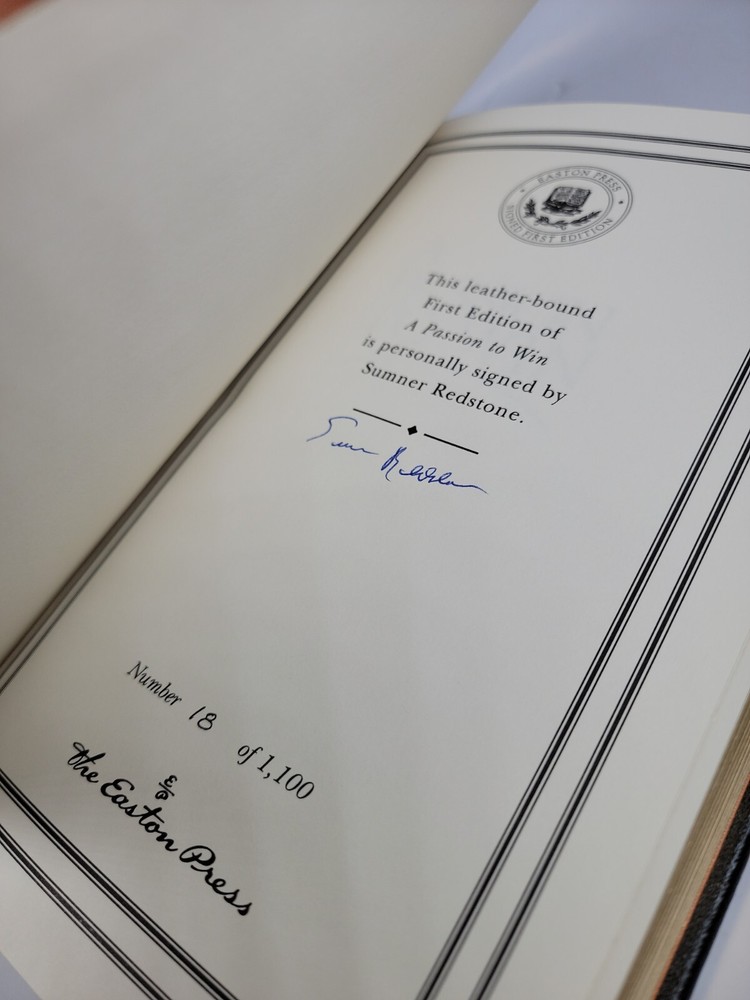 EASTON PRESS
SIGNED FIRST EDITION
This leather-bound
First Edition of
A Passion to Win
is personally signed by
Sumner Redstone.
Sumner Redstone
Number 18 of 1,100
E/P
The Easton Press